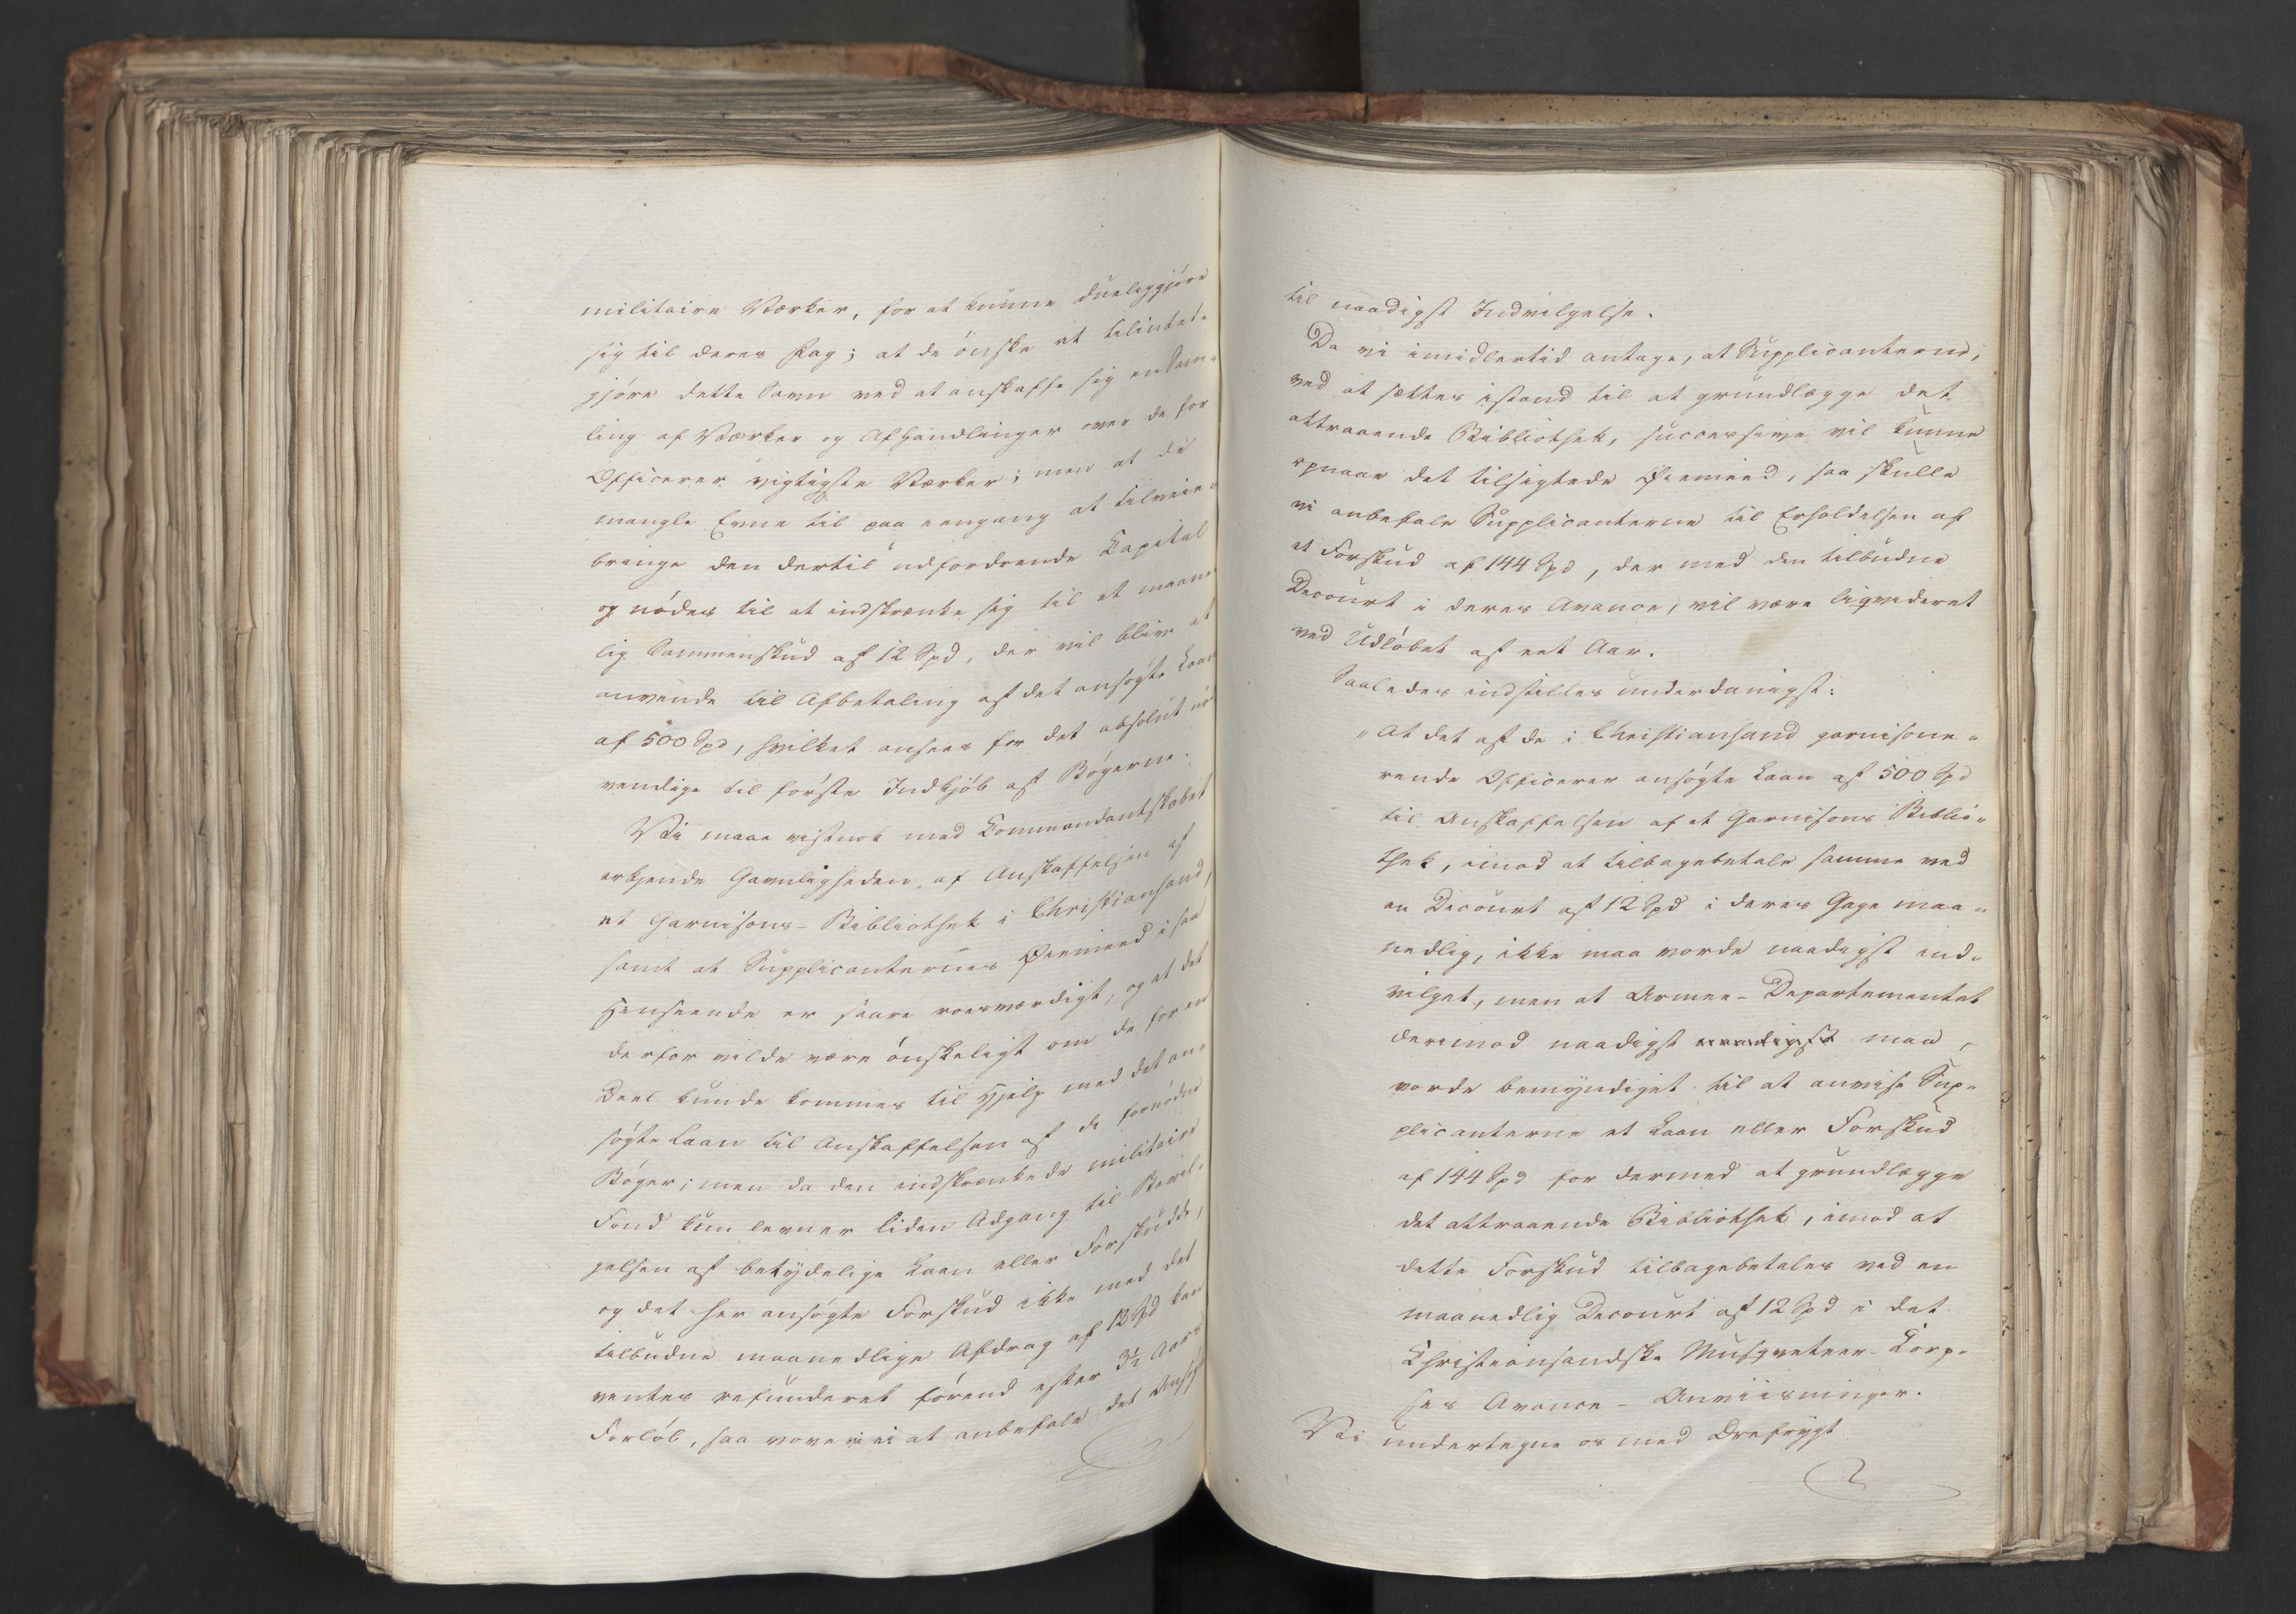 militaire Værker, for at kunne dueliggjøre
sig til deres Fag; at de ønske at tilintet-
gjøre dette Savn ved at anskaffe sig en Sam-
ling af Værker og Afhandlinger over de for
Officerer vigtigste Værker; men at de
mangle Evne til paa eengang at tilveie-
bringe den dertil udfordrende Capital
og nødes til at indskrænke sig til et maaned
lig Sammenskud af 12 Spd, der vil blive at
anvende til Afbetaling af det ansøgte Laan
af 500 Spd, hvilket ansees for det absolut nød
vendige til første Indkjøb af Bøgerne.
Vi maae vistnok med Commandantskabet
erkjende Gavnligheden af Anskaffelsen af
et Garnisons-Bibliothek i Christiansand,
samt at Supplicanternes Øiemeed i saa
Henseende er saare roesværdigt, og at det
derfor vilde være ønskeligt om de for en
Deel kunde kommes til Hjelp med det an-
søgte Laan til Anskaffelsen af de fornødne
Bøger; men da den indskrænkede militaire
Fond kun levner liden Adgang til Bevil-
gelsen af betydelige Laan eller Forskudde,
og det her ansøgte Forskud ikke med det
tilbudne maanedlige Afdrag af 12 Spd kan
ventes refunderet førend efter 3½ Aars
Forløb, saa vove vi ei at anbefale det Ansøgte
til naadigst Indvilgelse.
Da vi imidlertid antage, at Supplicanterne,
ved at sættes istand til at grundlægge det
attraaende Bibliothek, successive vil kunne
opnaae det tilsigtede Øiemeed, saa skulle
vi anbefale Supplicanterne til Erholdelsen af
et Forskud af 144 Spd, der med den tilbudne
Decourt i deres Avance, vil være liqvideret
ved Udløbet af eet Aar.
Saaledes indstilles underdanigst:
"At det af de i Christiansand garnisone-
rende Officerer ansøgte Laan af 500 Spd
til Anskaffelsen af et Garnisons Biblio-
thek, imod at tilbagebetale samme ved
en Decourt af 12 Spd i deres Gage maa-
nedlig, ikke maa vorde naadigst ind-
vilget, men at Armee-Departementet
derimod naadigst naadigst maa,
vorde bemyndiget til at anvise Sup-
plicanterne et Laan eller Forskud
af 144 Spd for dermed at grundlægge
det attraaende Bibliothek, imod at
dette Forskud tilbagebetales ved en
maanedlig Decourt af 12 Spd i det
Christiansandske Musqveteer-Corp-
ses Avance-Anviisninger.
Vi undertegne os med Ærefrygt